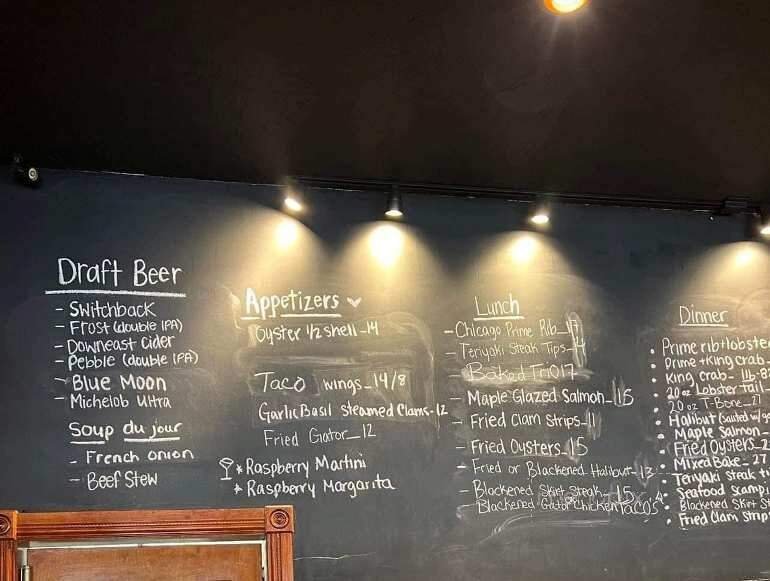 Draft Beer
- Switchback
- Frost (double IPA)
- Downeast cider
- Pebble (double IPA)
- Blue Moon
- Michelob Ultra
Soup du jour
- French onion
- Beef Stew
Appetizers
Oyster 1/2 shell - 14
Taco wings - 14/8
Garlic Basil Steamed Clams - 12
Fried Gator - 12
* Raspberry Martini
* Raspberry Margarita
Lunch
- Chicago Prime Rib - 17
- Teriyaki Steak Tips -
- Baked Trio 17
- Maple Glazed Salmon - 15
- Fried Clam Strips - 11
- Fried Oysters - 15
- Fried or Blackened Halibut - 13
- Blackened Skirt Steak - 15
- Blackened Gator Chicken Taco's
Dinner
• Prime rib + lobste
• Prime + King crab -
• King crab - 1lb -
• 20oz Lobster Tail -
• 20oz T-Bone - 27
• Halibut (sauted w/
• Maple Salmon -
• Fried Oysters - 2
• Mixed Bake - 27
• Teriyaki Steak ti
• Seafood Scampi
• Blackened Skirt St
• Fried Clam Strip